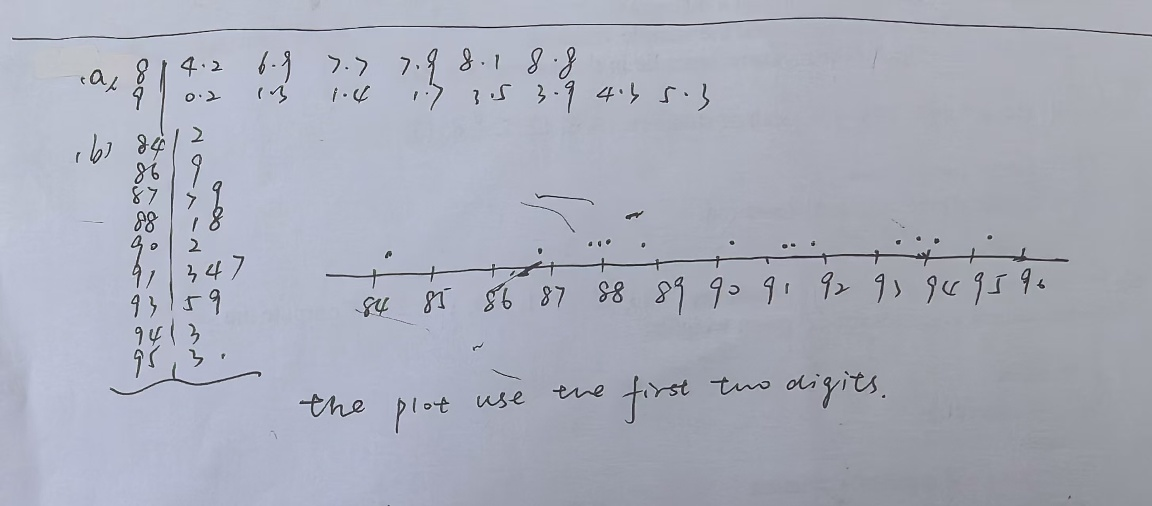 (a) 8 | 4.2 6.9 7.7 7.9 8.1 8.8
9 | 0.2 1.3 1.4 1.7 3.5 3.9 4.3 5.3
(b) 84 | 2
86 | 9
87 | 7 9
88 | 1 8
90 | 2
91 | 3 4 7
93 | 5 9
94 | 3
95 | 3.
84 85 86 87 88 89 90 91 92 93 94 95 96
the plot use the first two digits.